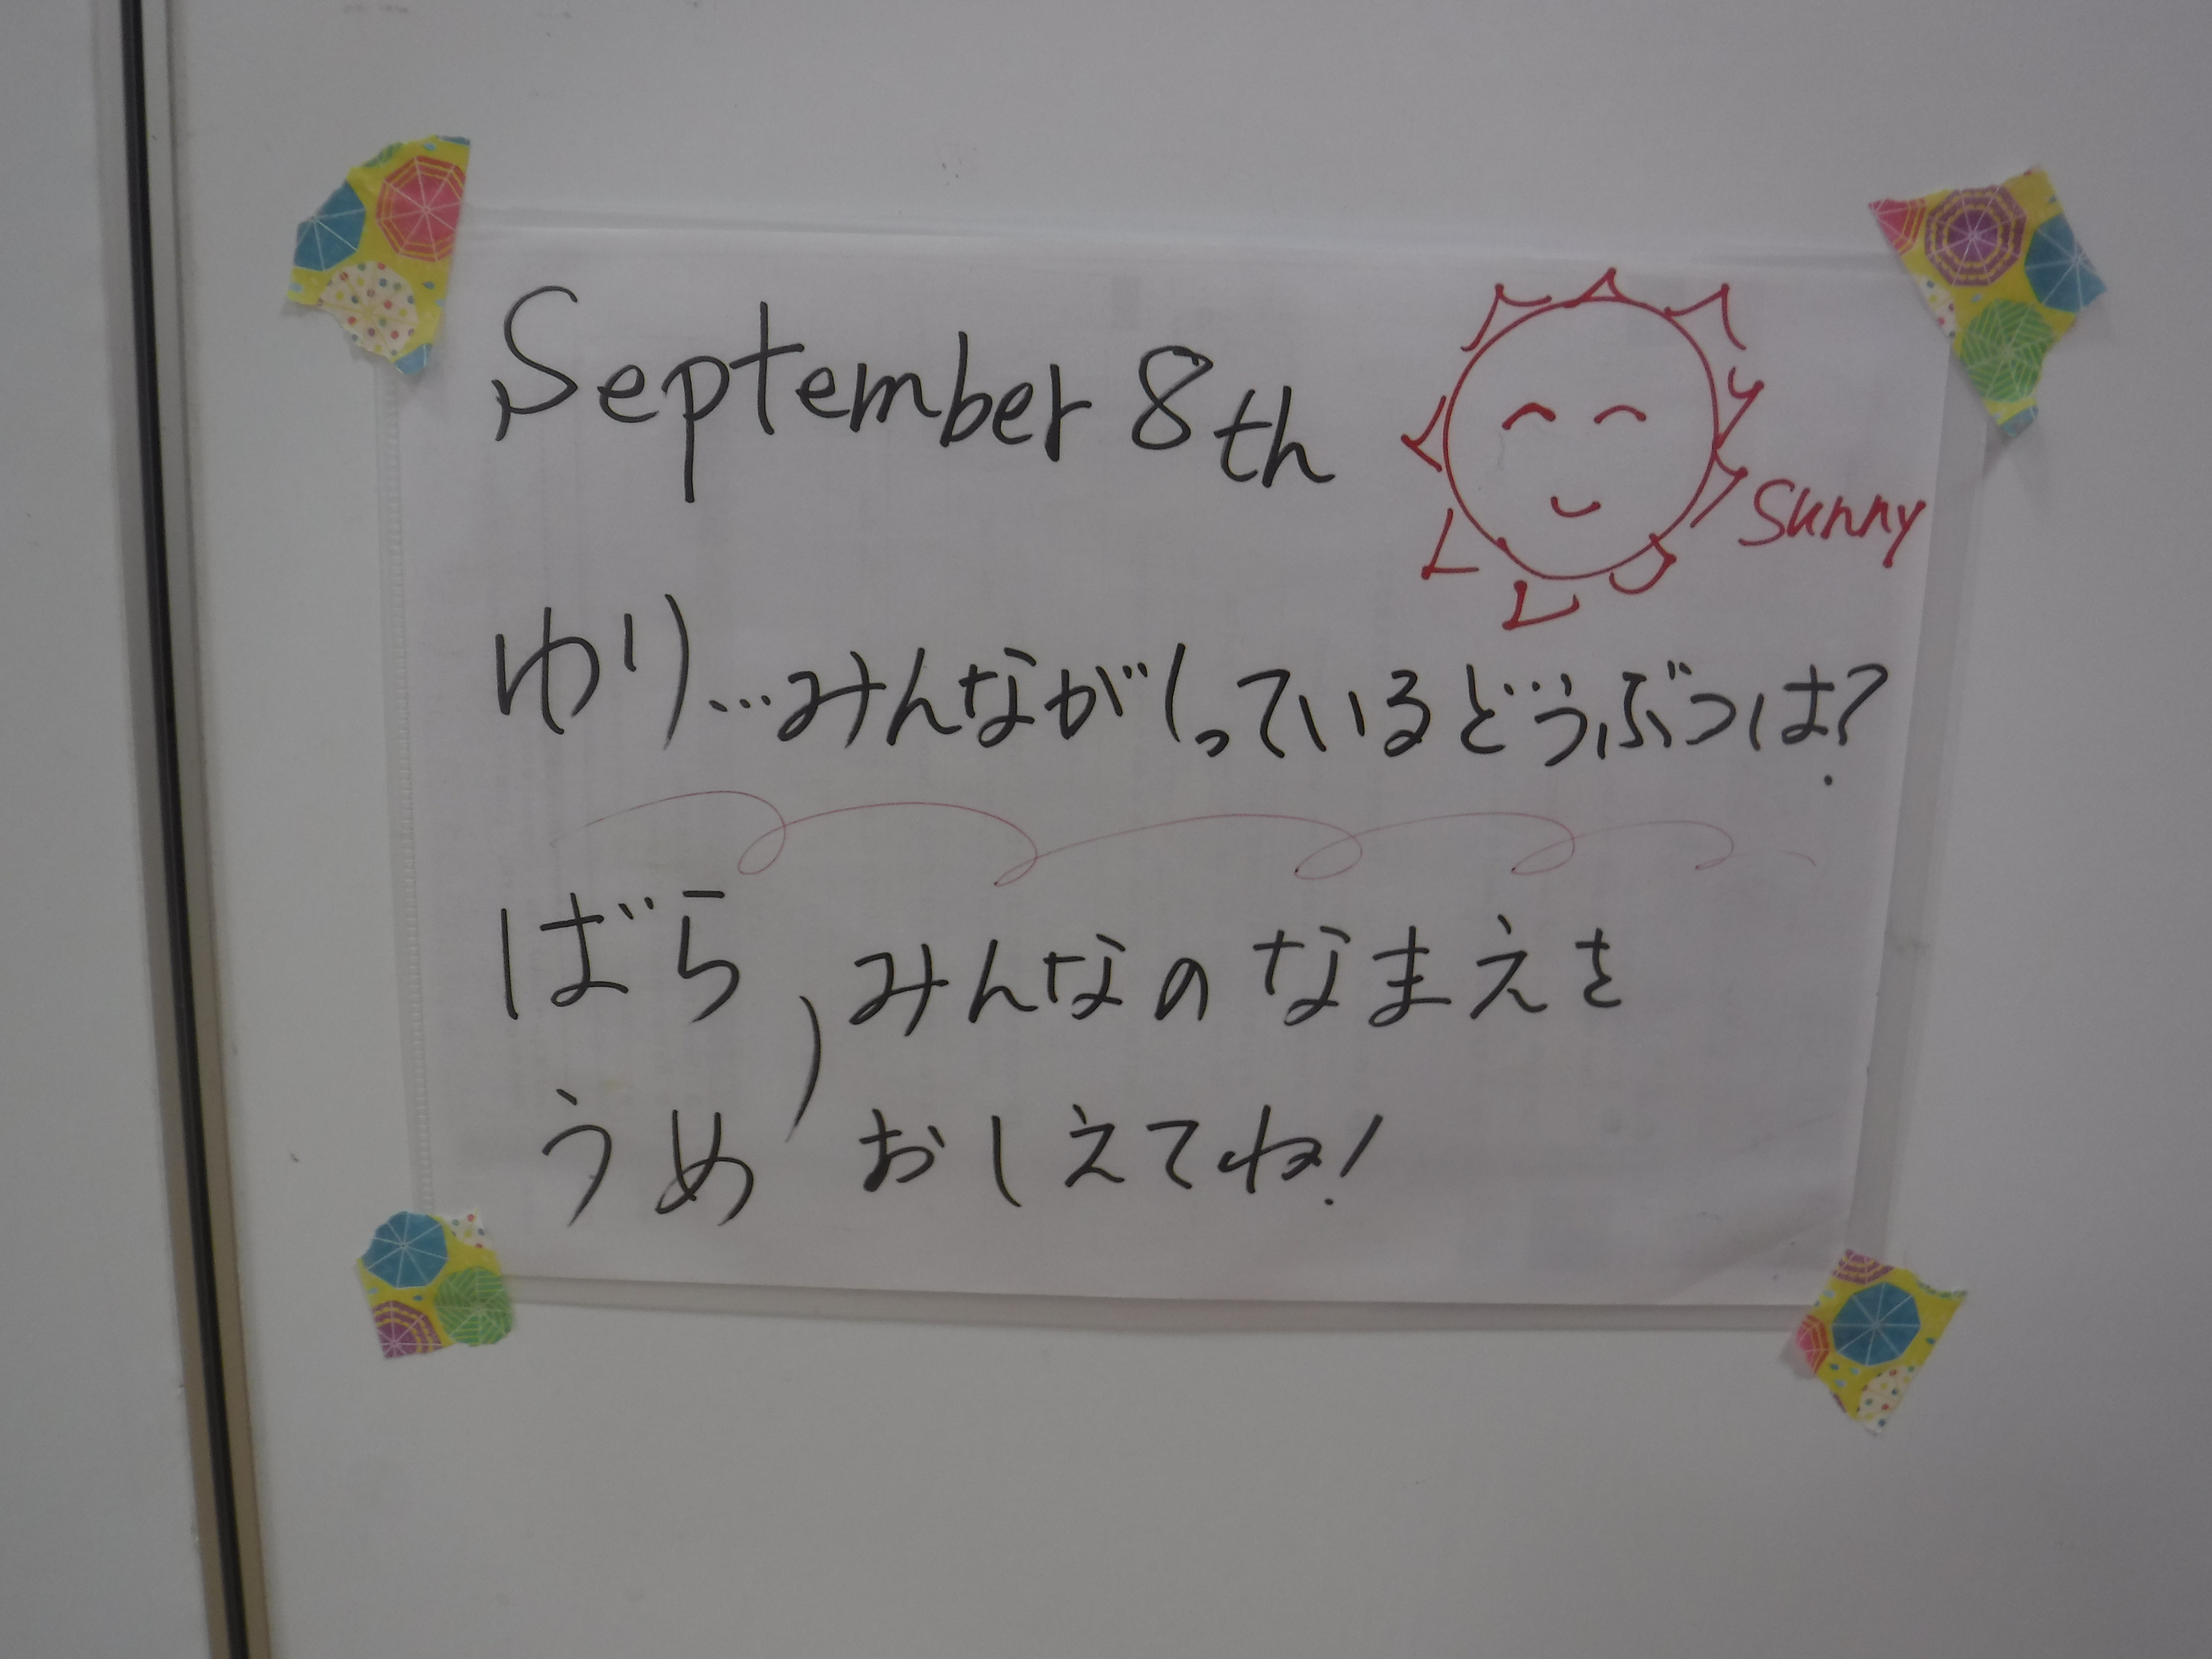 September 8th
Sunny
ゆり…みんながしっているどうぶつは?
ばら
うめ
みんなのなまえを
おしえてね!